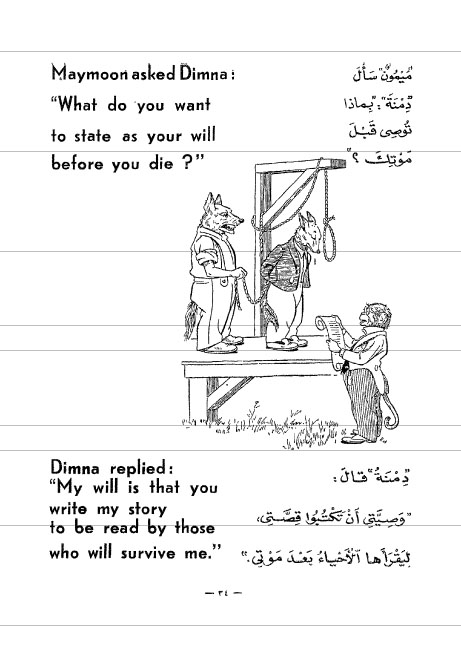 Maymoon asked Dimna:
“What do you want
to state as your will
before you die ?”
"مَيْمُونٌ" سَأَلَ
"دِمْنَةَ": "بِمَاذا
تُوصِي قَبْلَ
مَوْتِكَ ؟"
Dimna replied:
“My will is that you
write my story
to be read by those
who will survive me.”
"دِمْنَةُ" قَالَ:
"وَصِيَّتِي أَنْ تَكْتُبُوا قِصَّتِي،
لِيَقْرَأَها الْأَحْياءُ بَعْدَ مَوْتِي."
— ٣٤ —